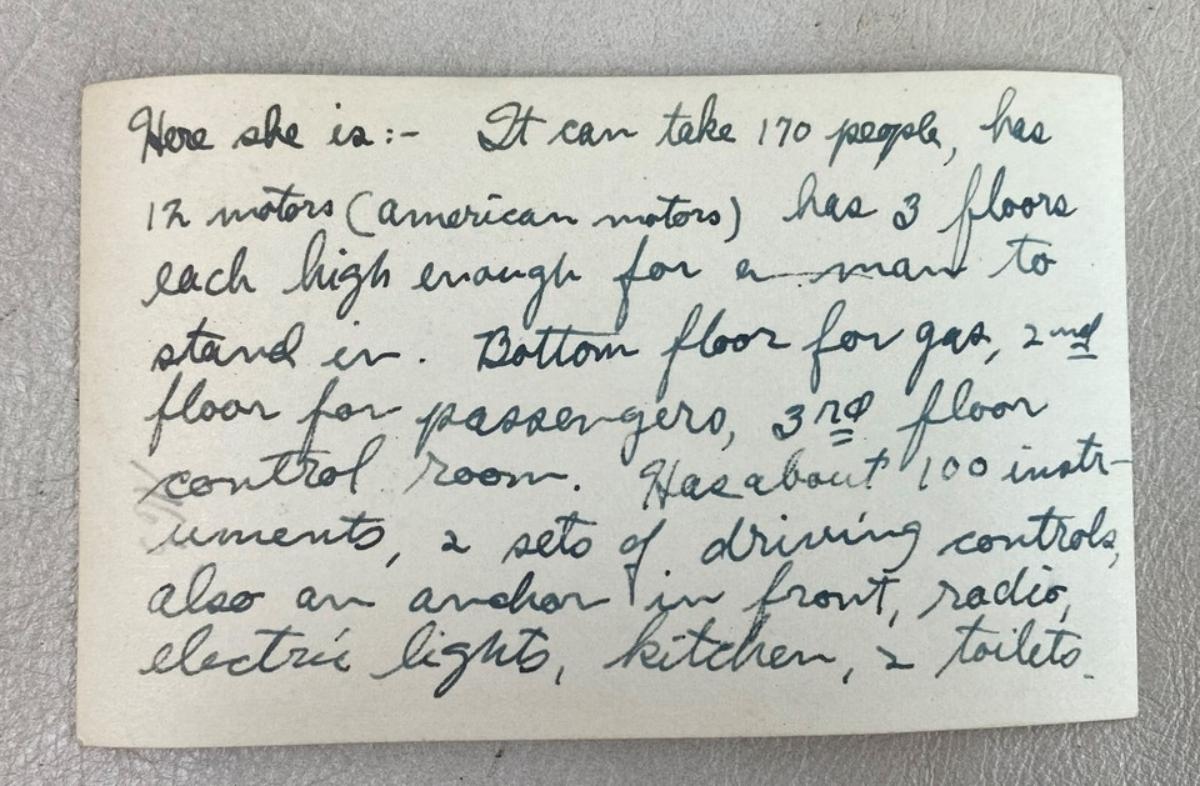 Here she is:- It can take 170 people, has
12 motors (american motors) has 3 floors
each high enough for a man to
stand in. Bottom floor for gas, 2nd
floor for passengers, 3rd floor
control room. Has about 100 instr-
uments, 2 sets of driving controls,
also an anchor in front, radio,
electric lights, kitchen, 2 toilets.